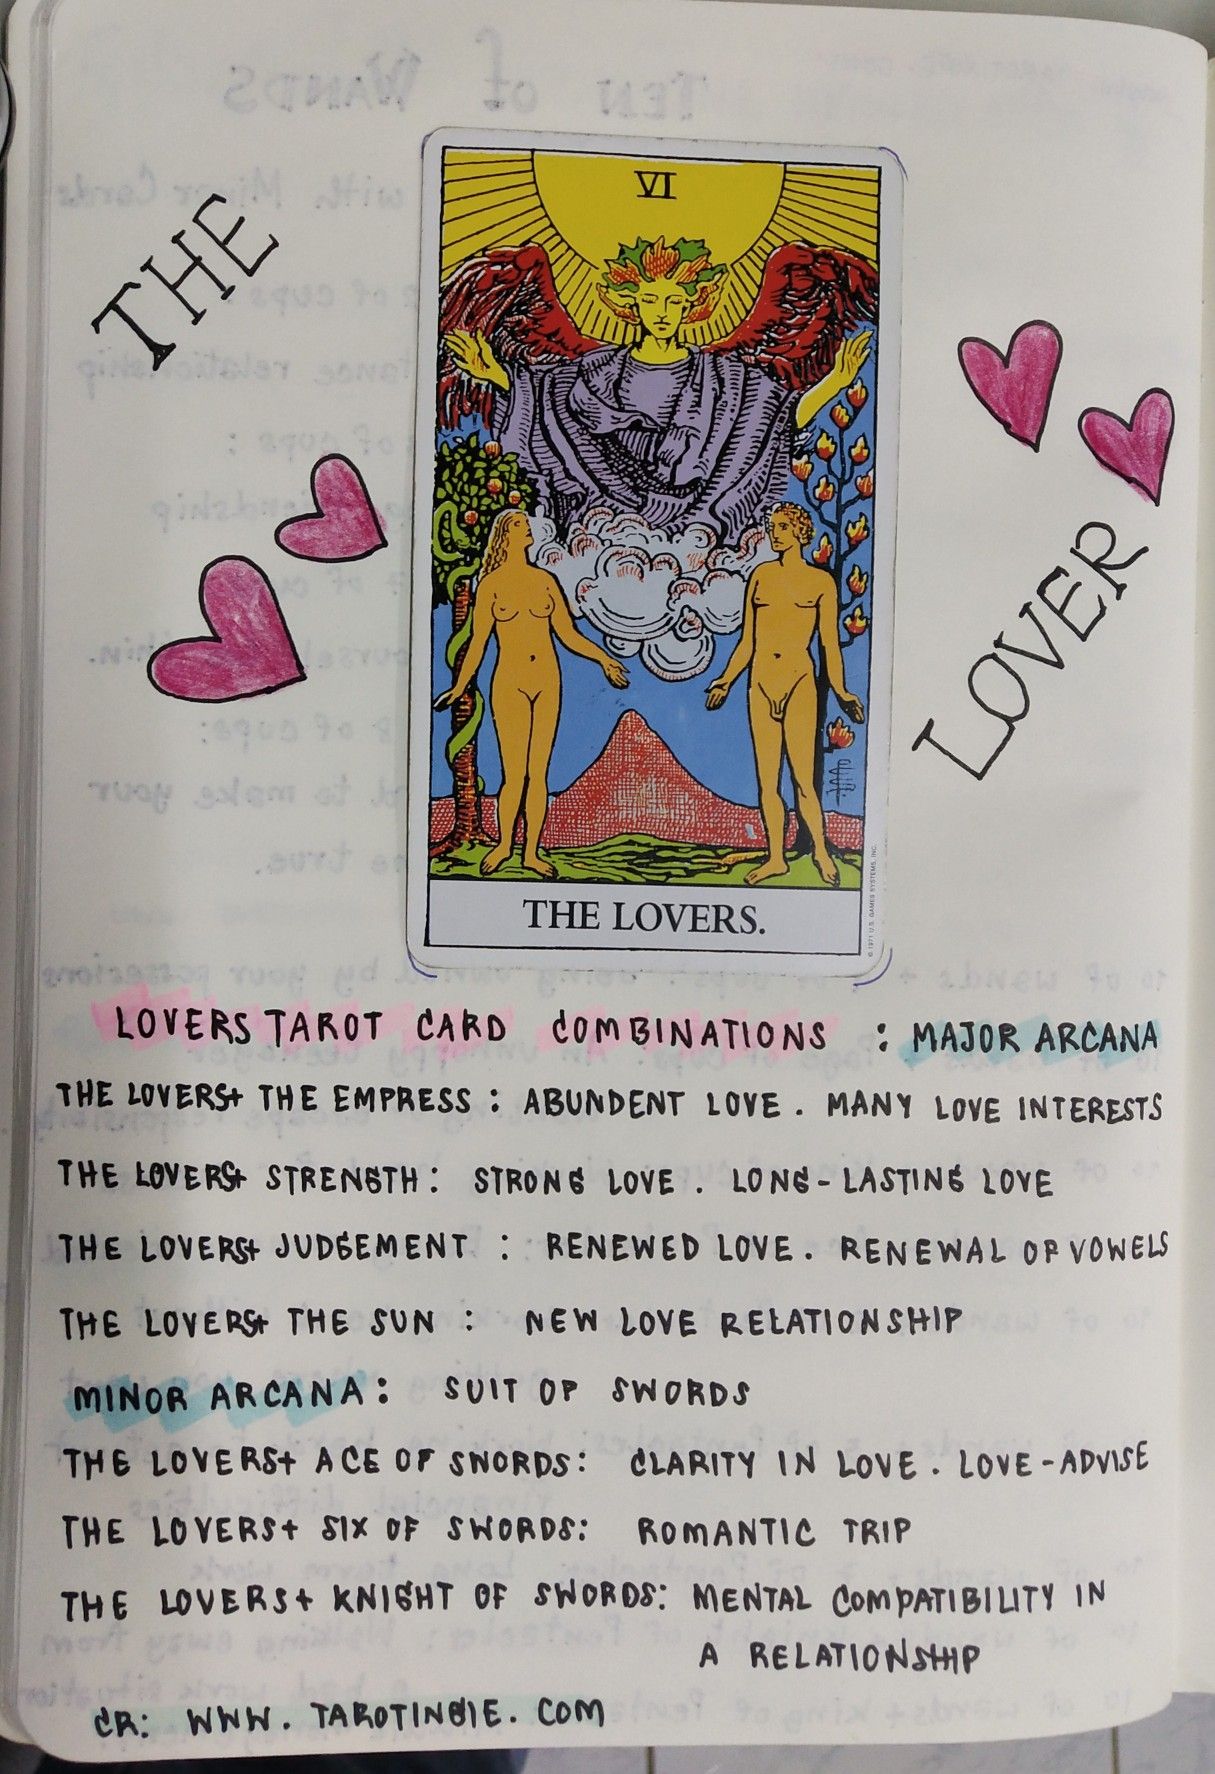 THE
VI
LOVER
THE LOVERS.
© 1971 U.S. GAMES SYSTEMS, INC.
LOVERS TAROT CARD COMBINATIONS : MAJOR ARCANA
THE LOVERS+ THE EMPRESS : ABUNDENT LOVE . MANY LOVE INTERESTS
THE LOVERS+ STRENGTH : STRONG LOVE . LONG-LASTING LOVE
THE LOVERS+ JUDGEMENT : RENEWED LOVE . RENEWAL OF VOWELS
THE LOVERS+ THE SUN : NEW LOVE RELATIONSHIP
MINOR ARCANA : SUIT OF SWORDS
THE LOVERS+ ACE OF SWORDS : CLARITY IN LOVE . LOVE-ADVISE
THE LOVERS+ SIX OF SWORDS : ROMANTIC TRIP
THE LOVERS+ KNIGHT OF SWORDS : MENTAL COMPATIBILITY IN
A RELATIONSHIP
CR: WWW. TAROTINGIE. COM